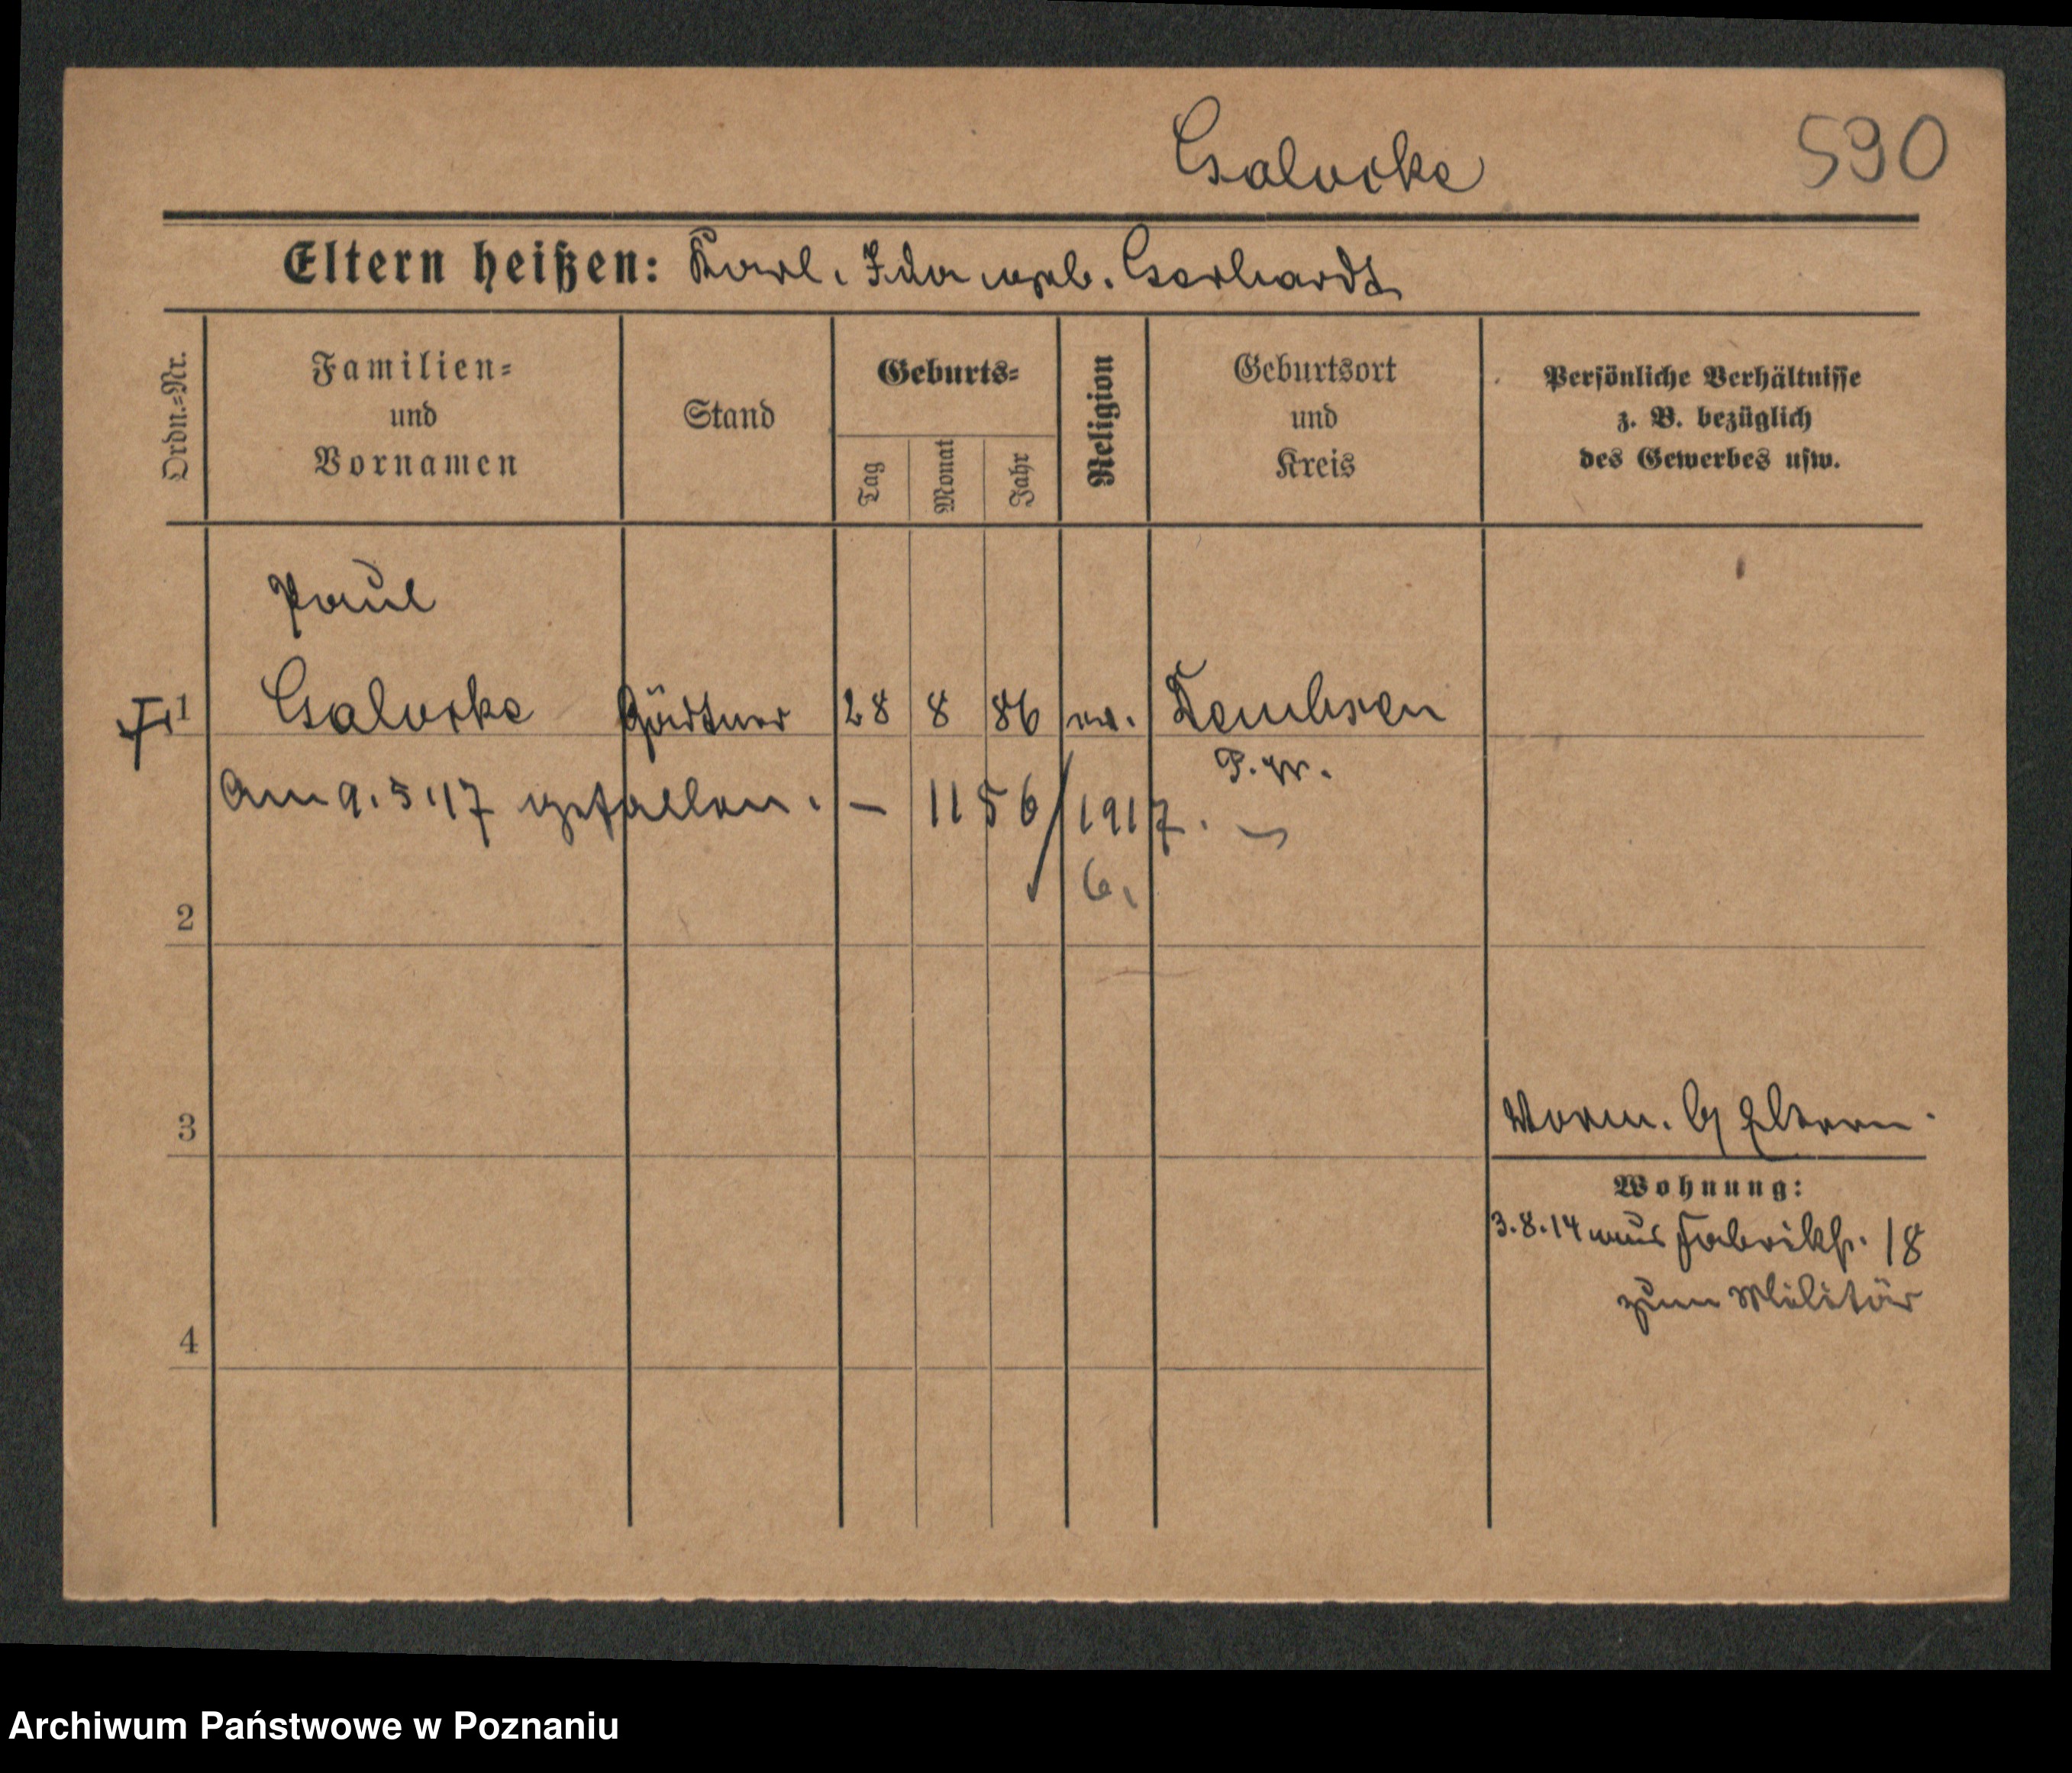 Galoske
590
Eltern heißen: Karl. Ida geb. Gerhardt
Ordn.-Nr.
Familien-
und
Vornamen
Stand
Geburts-
Tag
Monat
Jahr
Religion
Geburtsort
und
Kreis
Persönliche Verhältnisse
z. B. bezüglich
des Gewerbes usw.
Paul
1 Gärtner 28 8 86 ev. Dembsen
P. W.
Am 9.5.17 gefallen. – 1156/1917.
6.
2
3 Eltern.
Wohnung:
3.8.14 aus Fabrikstr. 18
zum Militär
4
Archiwum Państwowe w Poznaniu